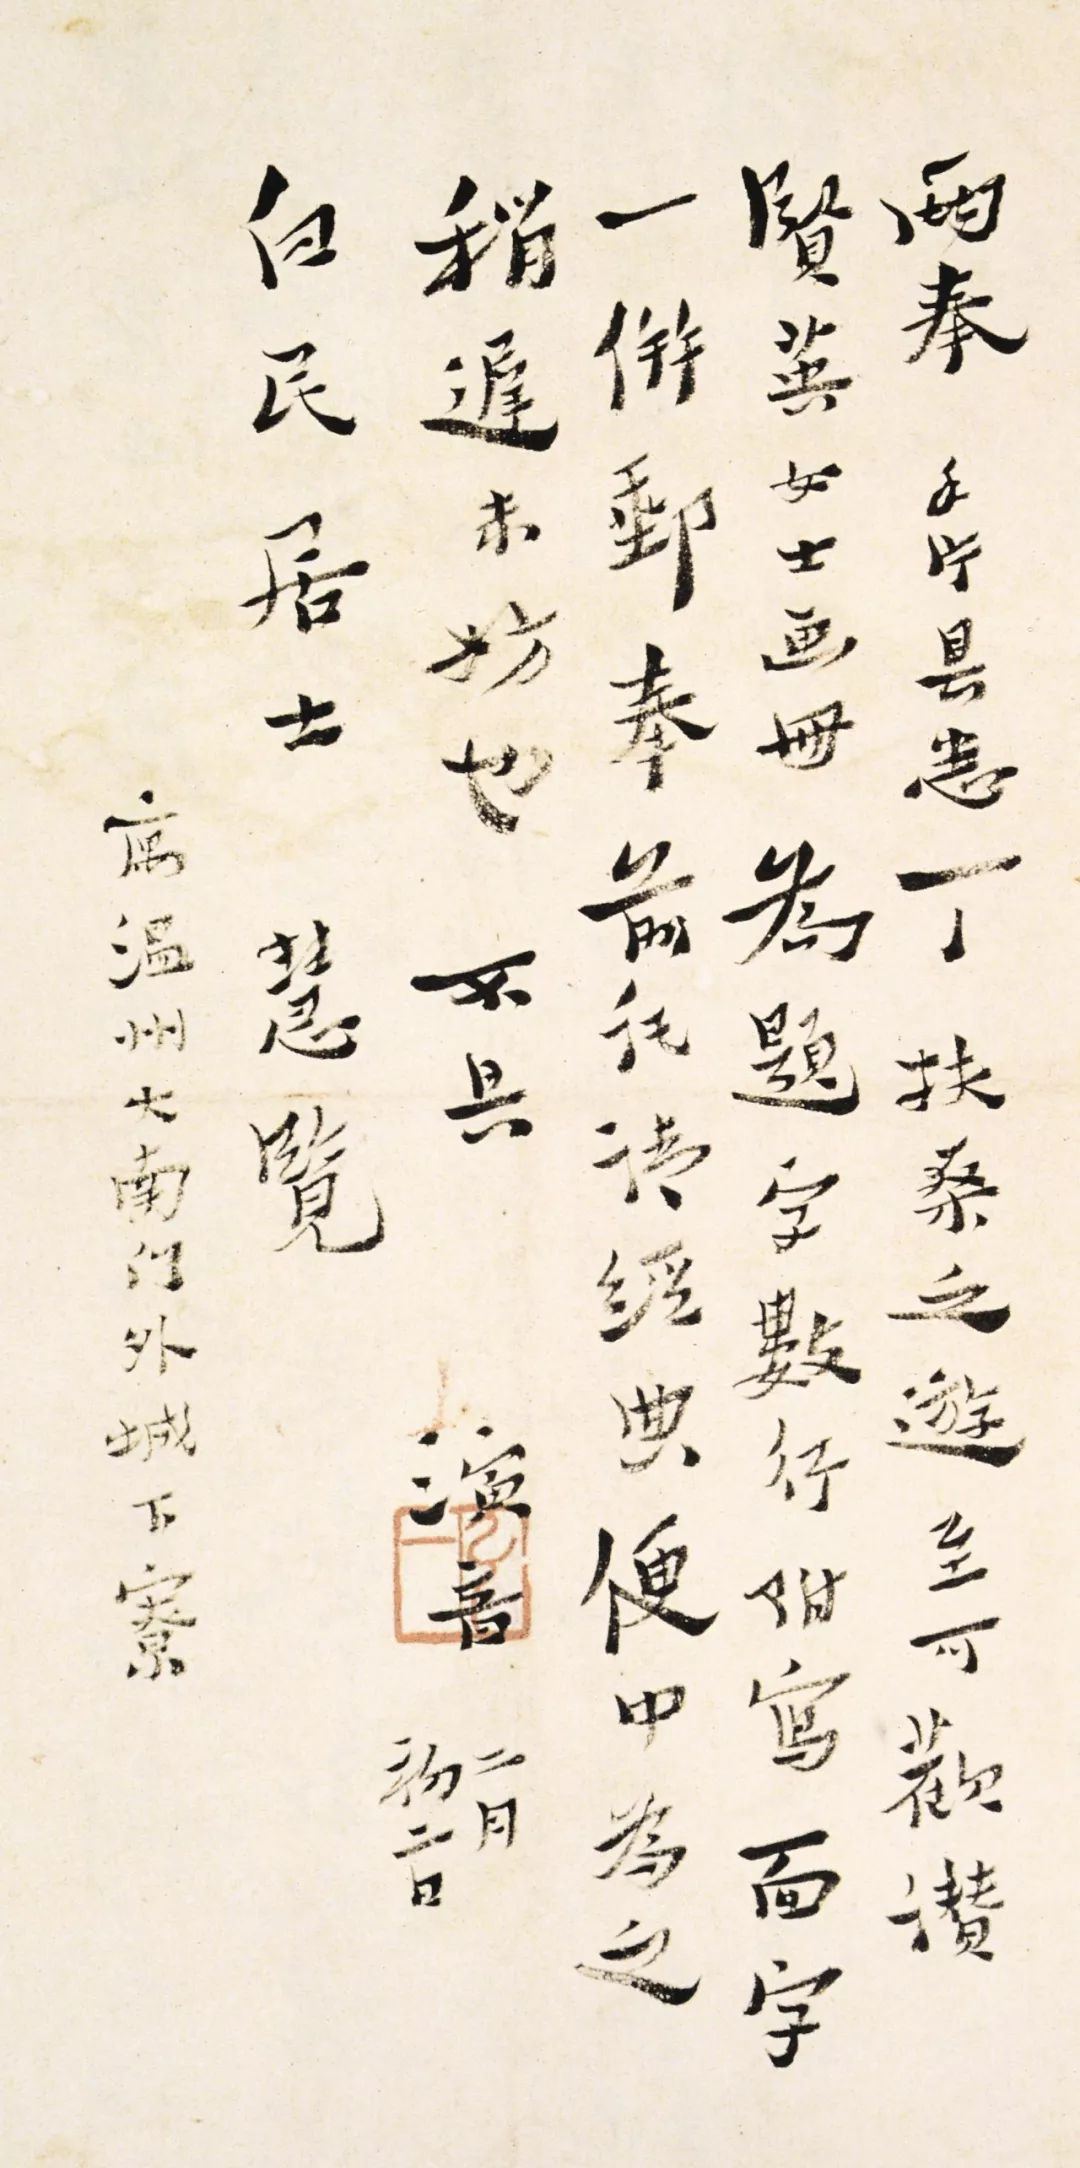 兩奉 手片具悉一丁扶桑之遊至可歡讚
賢英女士画冊為題字數行附寫面字
一併郵奉前託請經典便中為之
稍遲未妨也 不具 演音 二月初二日
白民居士 慧覽
寓溫州大南门外城下寮